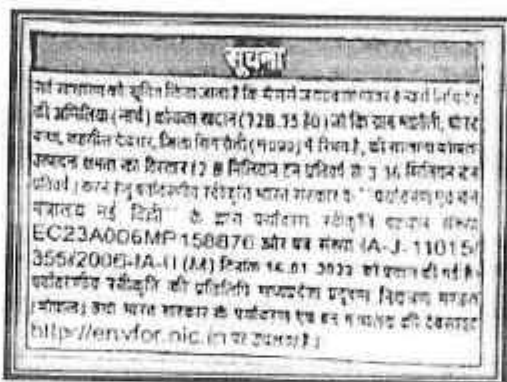 सूचना
सर्व साधारण को सूचित किया जाता है कि
की अमिलिया (नार्थ) कोयला खदान (728.75 हे0) जो कि ग्राम
तहसील देवसर, जिला सिंगरौली (म0प्र0) में स्थित है, की सामान्य कोयला
उत्पादन क्षमता का विस्तार (2.8 मिलियन टन प्रतिवर्ष से 3.36 मिलियन टन
प्रतिवर्ष) करने हेतु पर्यावरणीय स्वीकृति भारत सरकार के "पर्यावरण एवं वन
मंत्रालय नई दिल्ली" के द्वारा पर्यावरण स्वीकृति पहचान संख्या
EC23A006MP158876 और पत्र संख्या IA-J-11015/
355/2006-IA-II (M) दिनांक 16.01.2023 को प्रदान की गई है।
पर्यावरणीय स्वीकृति की प्रतिलिपि मध्यप्रदेश प्रदूषण नियंत्रण मण्डल
(भोपाल) तथा भारत सरकार के पर्यावरण एवं वन मंत्रालय की वेबसाइट
http://envfor.nic.in पर उपलब्ध है।